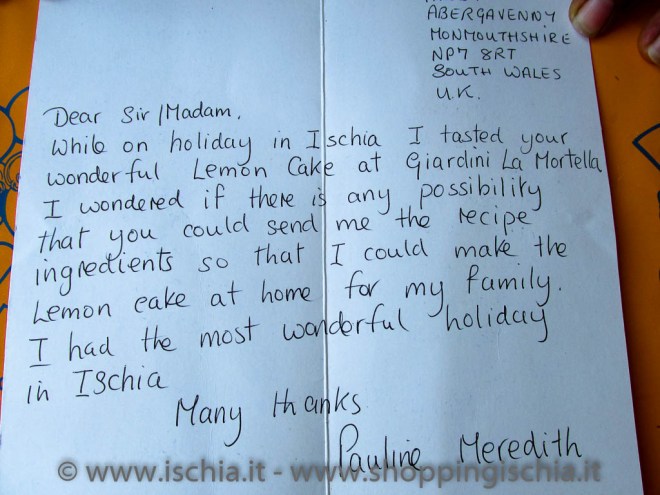 ABERGAVENNY
MONMOUTHSHIRE
NP7 8RT
SOUTH WALES
U.K.
Dear Sir/Madam.
While on holiday in Ischia I tasted your
wonderful Lemon Cake at Giardini La Mortella
I wondered if there is any possibility
that you could send me the recipe
ingredients so that I could make the
Lemon cake at home for my family.
I had the most wonderful holiday
in Ischia
Many thanks
Pauline Meredith
© www.ischia.it - www.shoppingischia.it